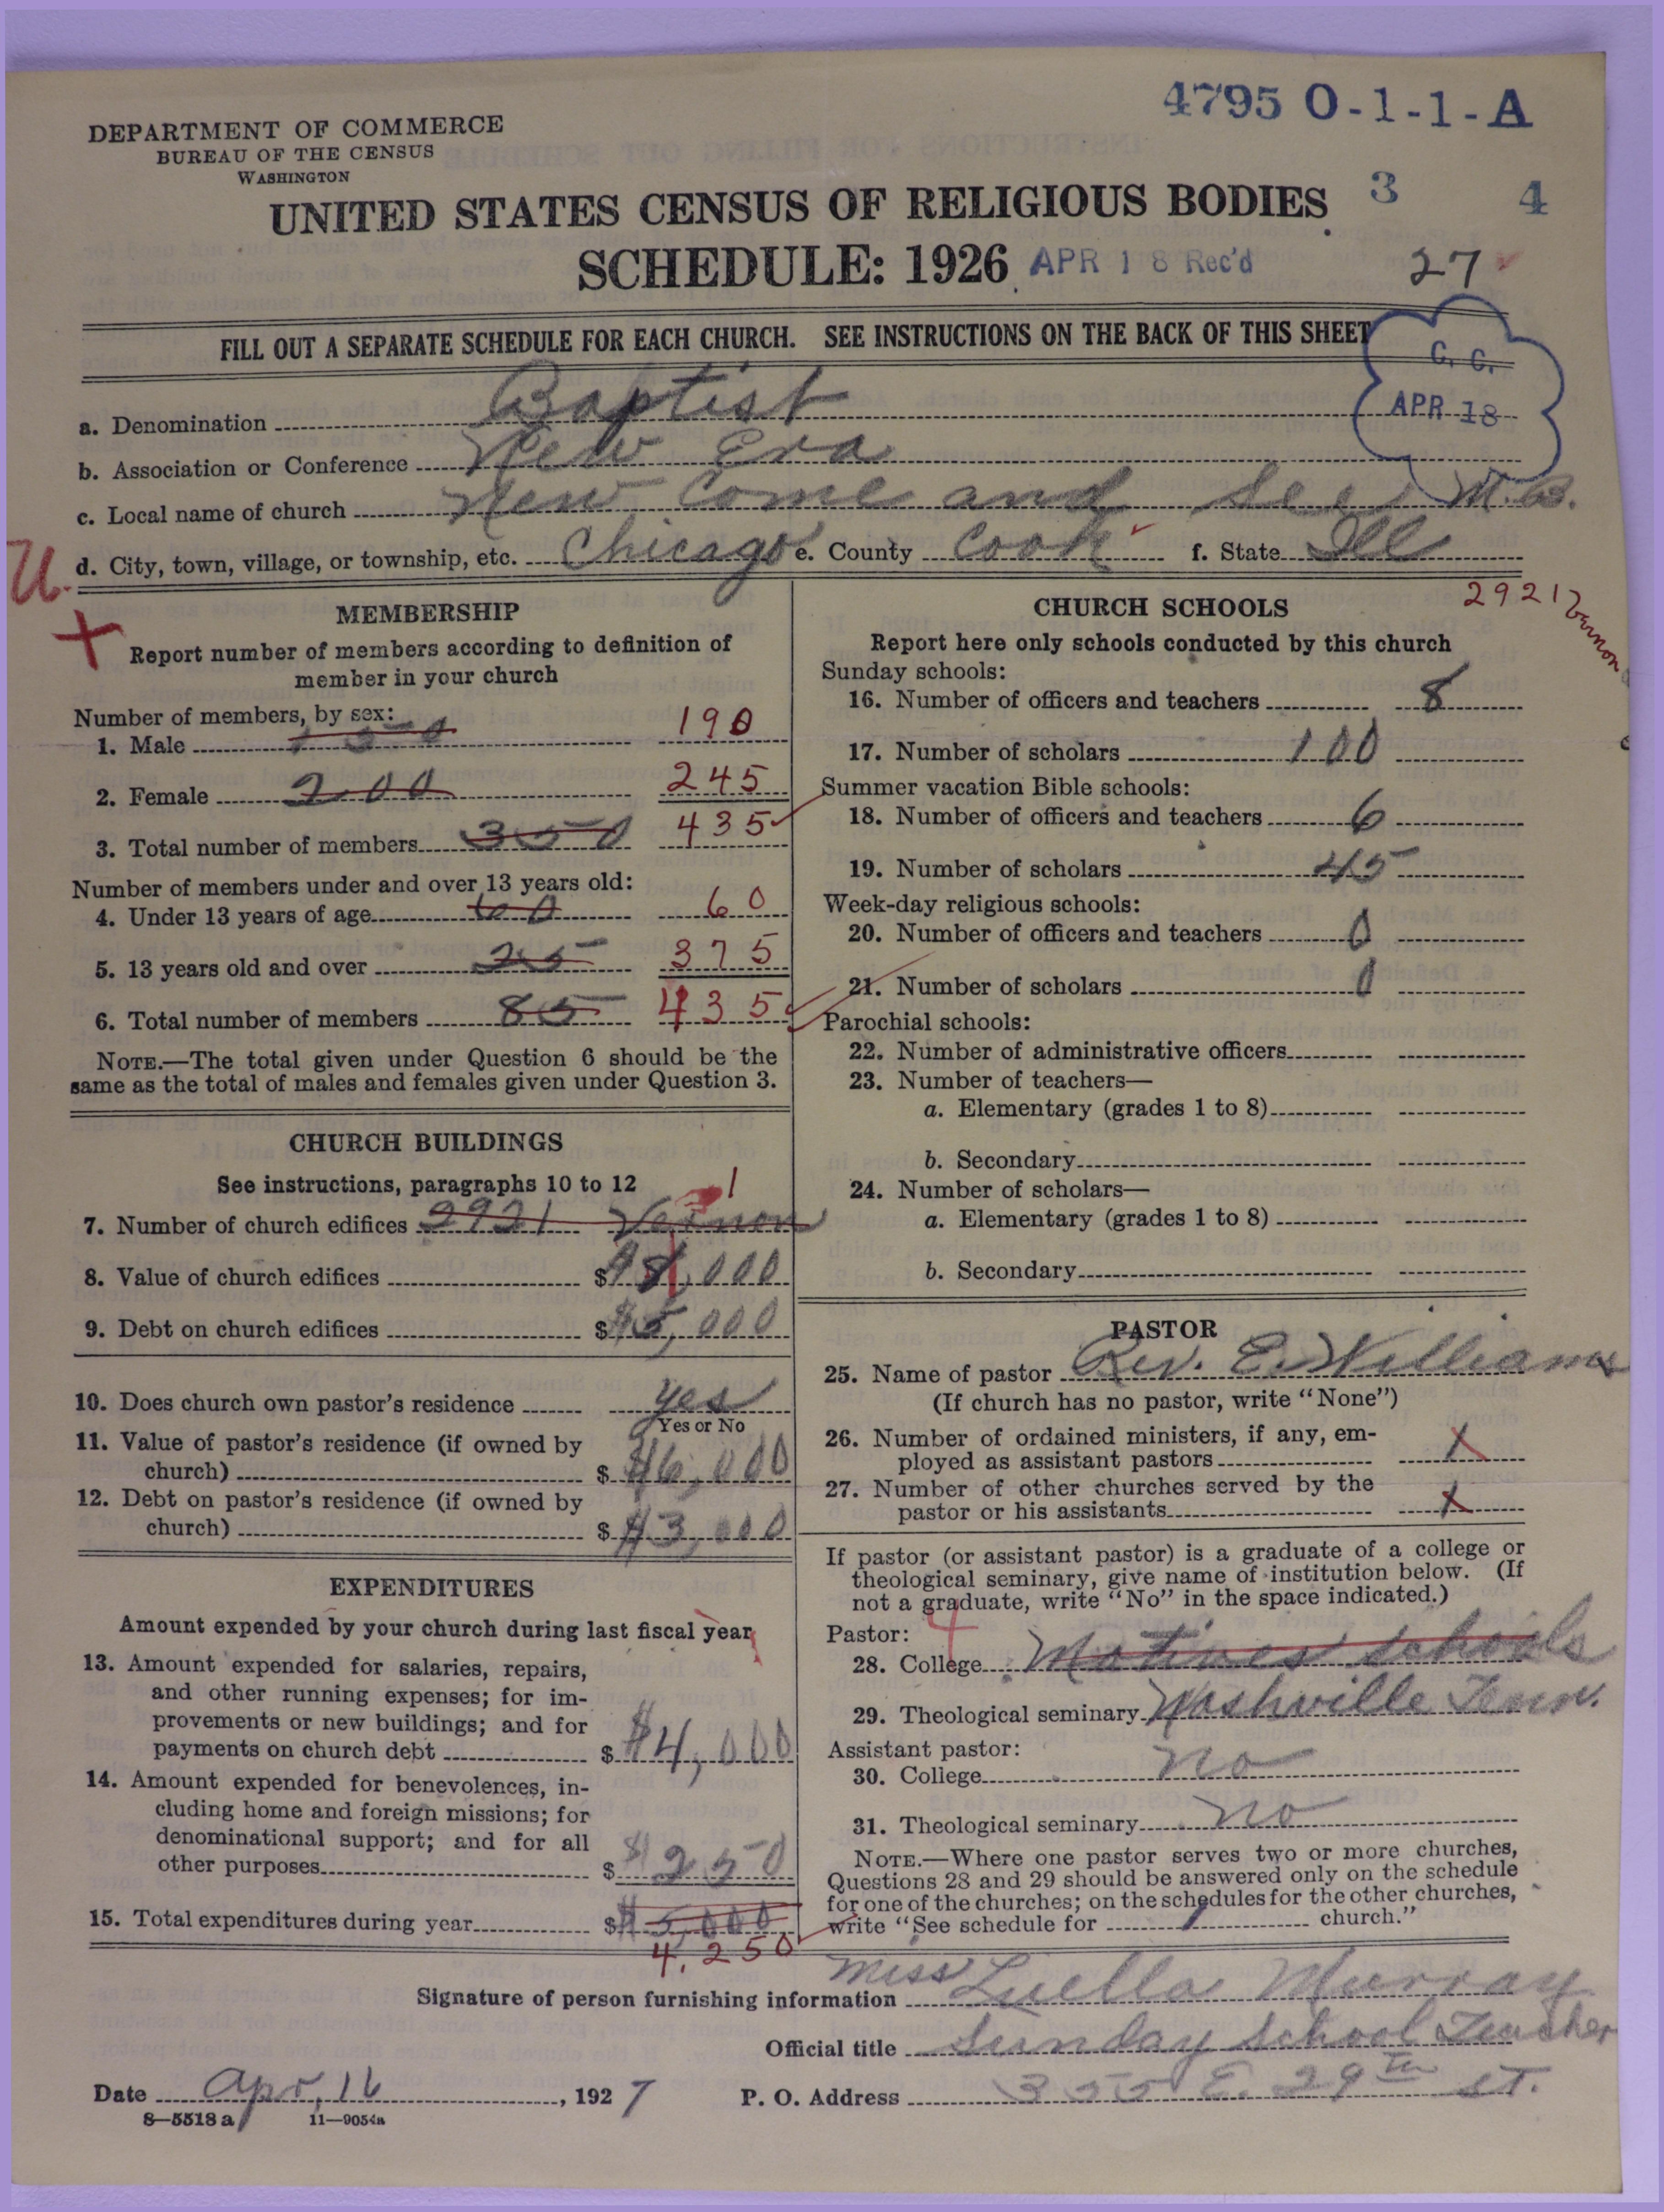 4795 O-1-1-A
DEPARTMENT OF COMMERCE
BUREAU OF THE CENSUS
WASHINGTON
UNITED STATES CENSUS OF RELIGIOUS BODIES 3 4
SCHEDULE: 1926 APR 18 Rec'd 27
FILL OUT A SEPARATE SCHEDULE FOR EACH CHURCH. SEE INSTRUCTIONS ON THE BACK OF THIS SHEET
C. C.
APR 18
a. Denomination Baptist
b. Association or Conference New Era
c. Local name of church New Come and See M.B.
d. City, town, village, or township, etc. Chicago e. County Cook f. State Ill
U.
2921 Vernon
MEMBERSHIP
Report number of members according to definition of
member in your church
Number of members, by sex:
1. Male 150 190
2. Female 200 245
3. Total number of members 350 435
Number of members under and over 13 years old:
4. Under 13 years of age 60 60
5. 13 years old and over 25 375
6. Total number of members 85 435
NOTE.—The total given under Question 6 should be the
same as the total of males and females given under Question 3.
CHURCH BUILDINGS
See instructions, paragraphs 10 to 12
7. Number of church edifices 2921 Vernon 1
8. Value of church edifices $ ,000
9. Debt on church edifices $ $5,000
10. Does church own pastor's residence yes
Yes or No
11. Value of pastor's residence (if owned by
church) $ $6,000
12. Debt on pastor's residence (if owned by
church) $ $3,000
EXPENDITURES
Amount expended by your church during last fiscal year
13. Amount expended for salaries, repairs,
and other running expenses; for im-
provements or new buildings; and for
payments on church debt $ $4,000
14. Amount expended for benevolences, in-
cluding home and foreign missions; for
denominational support; and for all
other purposes $ $250
15. Total expenditures during year $ $5,000
4,250
CHURCH SCHOOLS
Report here only schools conducted by this church
Sunday schools:
16. Number of officers and teachers 8
17. Number of scholars 100
Summer vacation Bible schools:
18. Number of officers and teachers 6
19. Number of scholars 45
Week-day religious schools:
20. Number of officers and teachers 0
21. Number of scholars 0
Parochial schools:
22. Number of administrative officers
23. Number of teachers—
a. Elementary (grades 1 to 8)
b. Secondary
24. Number of scholars—
a. Elementary (grades 1 to 8)
b. Secondary
PASTOR
25. Name of pastor Rev. E. Williams
(If church has no pastor, write "None")
26. Number of ordained ministers, if any, em-
ployed as assistant pastors X
27. Number of other churches served by the
pastor or his assistants X
If pastor (or assistant pastor) is a graduate of a college or
theological seminary, give name of institution below. (If
not a graduate, write "No" in the space indicated.)
Pastor:
28. College schools
29. Theological seminary Nashville Tenn.
Assistant pastor:
30. College no
31. Theological seminary no
NOTE.—Where one pastor serves two or more churches,
Questions 28 and 29 should be answered only on the schedule
for one of the churches; on the schedules for the other churches,
write "See schedule for church."
Signature of person furnishing information Miss Luella Murray
Official title Sunday School Teacher
Date Apr, 16, 1927 P. O. Address 355 E. 29th St.
8—5518 a 11—9054a